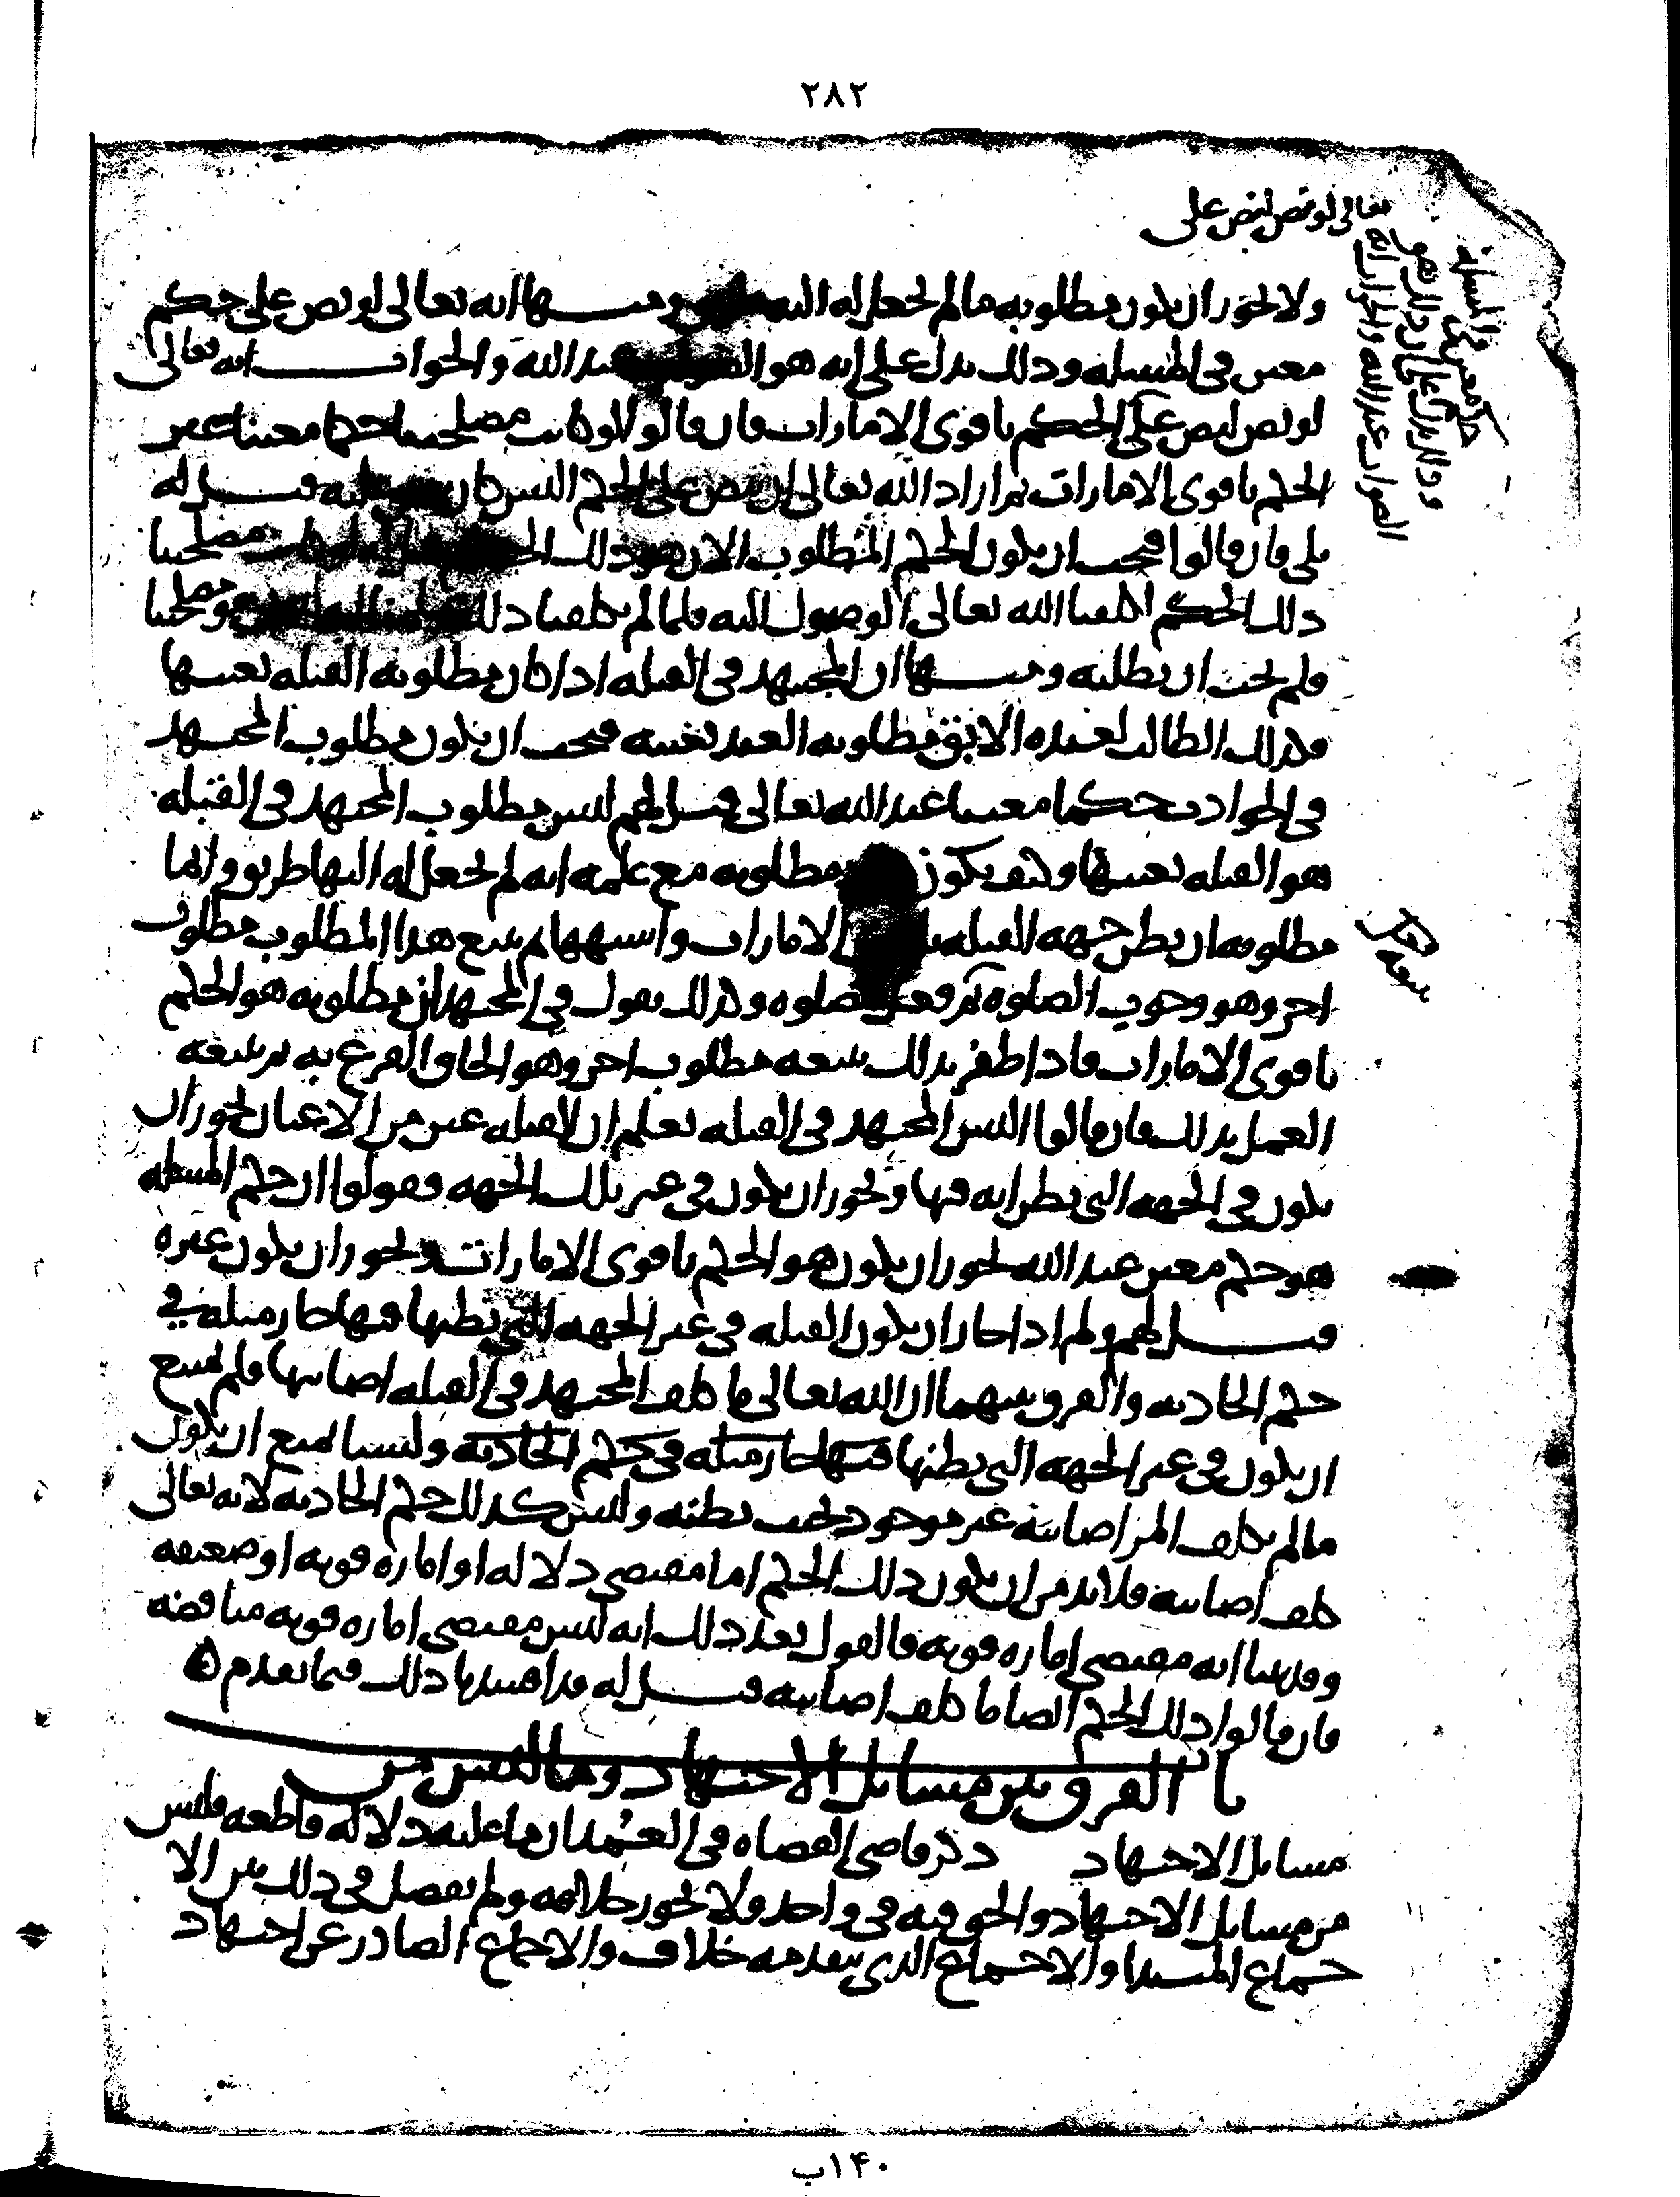 ٢٨٢
تعالى لو نص لنص على
حكم معين في المسئلة
وذلك يدل على انه هو
الصواب عند الله والجواب انه
ولا يجوز ان يكون مطلوبه ما لم يجعل له اليه ومنها انه تعالى لو نص على حكم
معين في المسئله وذلك يدل على انه هو عند الله والجواب انه تعالى
لو نص لنص على الحكم باقوى الامارات فان قالوا لو كانت مصلحتنا حكما معينا غير
الحكم باقوى الامارات ثم اراد الله تعالى ان ينص على الحكم اليس كان قيل له
بلى فان قالوا فيجب ان يكون الحكم المطلوب الان هو ذلك مصلحتنا
ذلك الحكم لكلفنا الله تعالى الوصول اليه فلما لم يكلفنا ذلك مصلحتنا
فلم يجب ان نطلبه ومنها ان المجتهد في القبله اذا كان مطلوبه القبله بعينها
وكذلك الطالب لعبده الابق مطلوبه العبد بعينه فيجب ان يكون مطلوب المجتهد
في الحوادث حكما معينا عند الله تعالى قيل لهم ليس مطلوب المجتهد في القبله
هو القبله بعينها وكيف يكون مطلوبه مع علمه انه لم يجعل له اليها طريق وانما
مطلوبه ان يظن جهه القبله الامارات واشبهها ثم يتبع هذا المطلوب مطلوب
اخر وهو وجوب الصلوه ثم فعل الصلوه وكذلك نقول في المجتهد ان مطلوبه هو الحكم
باقوى الامارات فاذا ظفر بذلك يتبعه مطلوب اخر وهو الحاق الفرع به ثم يتبعه
العمل بذلك فان قالوا اليس المجتهد في القبله يعلم ان القبله عين من الاعيان يجوز ان
يكون في الجهه التي يظن انه فيها ويجوز ان يكون في غير تلك الجهه فقولوا ان حكم المسئله
هو حكم معين عند الله يجوز ان يكون هو الحكم باقوى الامارات ويجوز ان يكون غيره
قيل لهم ولم اذا جاز ان يكون القبله في غير الجهه التي يظنها فيها جاز مثله في
حكم الحادثه والفرق بينهما ان الله تعالى ما كلف المجتهد في القبله اصابتها فلم يمتنع
ان يكون في غير الجهه التي يظنها فيها جاز مثله في حكم الحادثه ولسنا نمنع ان يكون
ما لم يكلف المرء اصابته غير موجود بحيث يظنه وليس كذلك حكم الحادثه لانه تعالى
كلف اصابته فلا بد من ان يكون ذلك الحكم اما مقتضى دلاله او اماره قويه او ضعيفه
وقد بينا انه مقتضى اماره قويه فالقول بعد ذلك انه ليس مقتضى اماره قويه مناقضه
فان قالوا ذلك الحكم ايضا ما كلف اصابته قيل له قد افسدنا ذلك فيما تقدم ه
باب الفرق بين مسائل الاجتهاد وما ليس من
مسائل الاجتهاد ذكر قاضي القضاه في العمد ان ما عليه دلاله قاطعه فليس
من مسائل الاجتهاد والحق فيه في واحد ولا يجوز خلافه ولم يفصل في ذلك بين الا
جماع المبتدا والاجماع الذي يتقدمه خلاف والاجماع الصادر عن اجتهاد
١۴٠ب